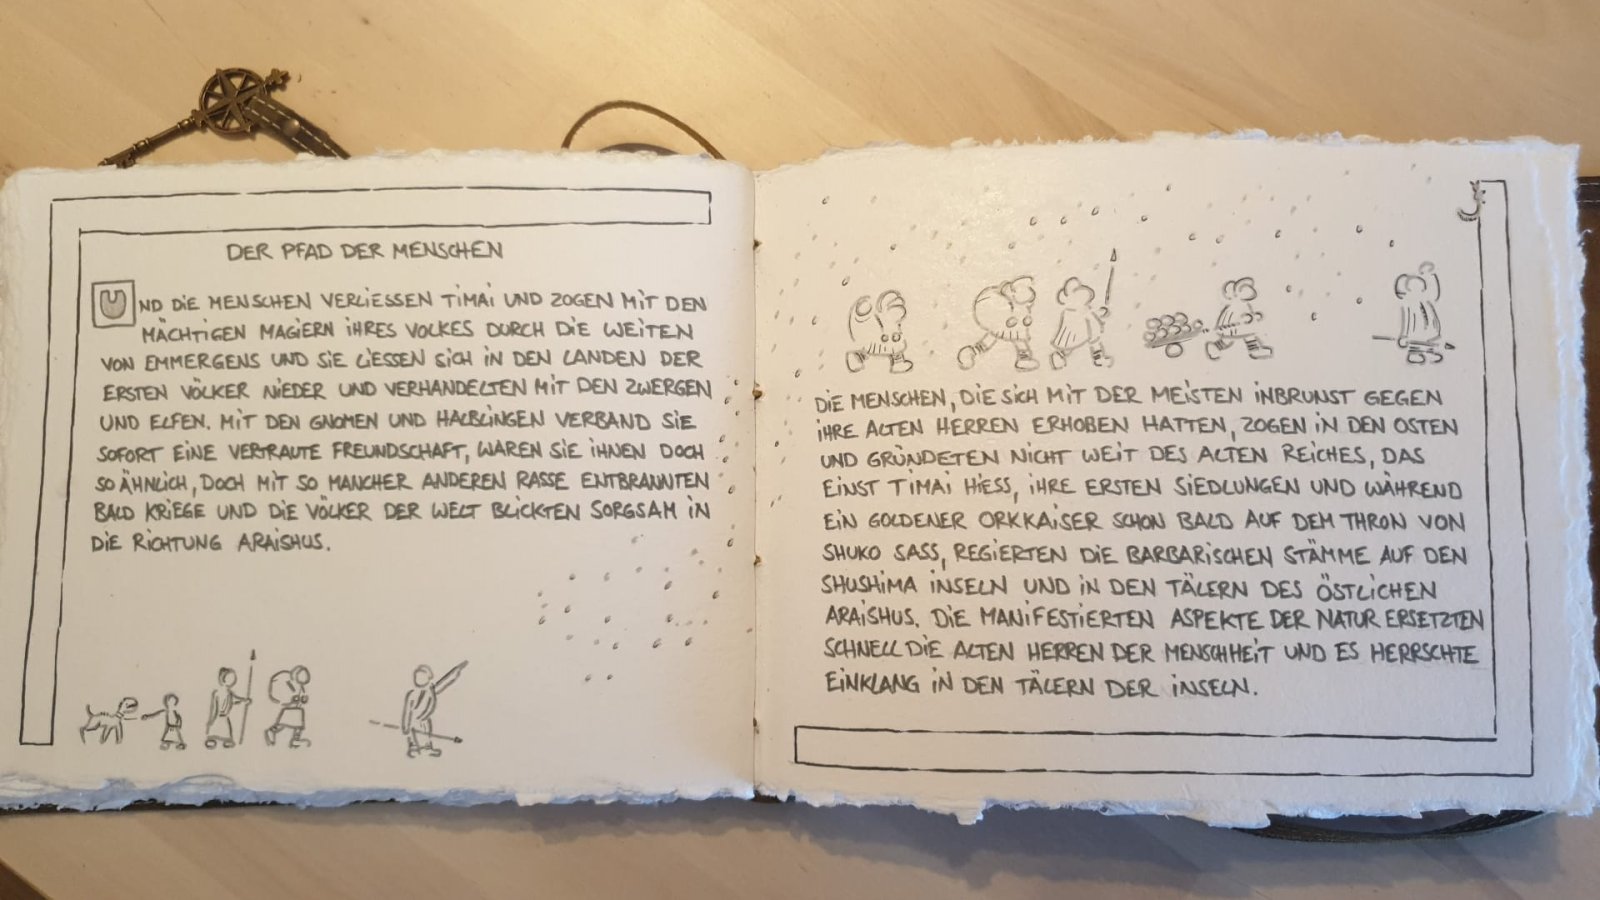 DER PFAD DER MENSCHEN
UND DIE MENSCHEN VERLIESSEN TIMAI UND ZOGEN MIT DEN
MÄCHTIGEN MAGIERN IHRES VOLKES DURCH DIE WEITEN
VON EMMERGENS UND SIE LIESSEN SICH IN DEN LANDEN DER
ERSTEN VÖLKER NIEDER UND VERHANDELTEN MIT DEN ZWERGEN
UND ELFEN. MIT DEN GNOMEN UND HALBLINGEN VERBAND SIE
SOFORT EINE VERTRAUTE FREUNDSCHAFT, WAREN SIE IHNEN DOCH
SO ÄHNLICH, DOCH MIT SO MANCHER ANDEREN RASSE ENTBRANNTEN
BALD KRIEGE UND DIE VÖLKER DER WELT BLICKTEN SORGSAM IN
DIE RICHTUNG ARAISHUS.
DIE MENSCHEN, DIE SICH MIT DER MEISTEN INBRUNST GEGEN
IHRE ALTEN HERREN ERHOBEN HATTEN, ZOGEN IN DEN OSTEN
UND GRÜNDETEN NICHT WEIT DES ALTEN REICHES, DAS
EINST TIMAI HIESS, IHRE ERSTEN SIEDLUNGEN UND WÄHREND
EIN GOLDENER ORKKAISER SCHON BALD AUF DEM THRON VON
SHUKO SASS, REGIERTEN DIE BARBARISCHEN STÄMME AUF DEN
SHUSHIMA INSELN UND IN DEN TÄLERN DES ÖSTLICHEN
ARAISHUS. DIE MANIFESTIERTEN ASPEKTE DER NATUR ERSETZTEN
SCHNELL DIE ALTEN HERREN DER MENSCHHEIT UND ES HERRSCHTE
EINKLANG IN DEN TÄLERN DER INSELN.